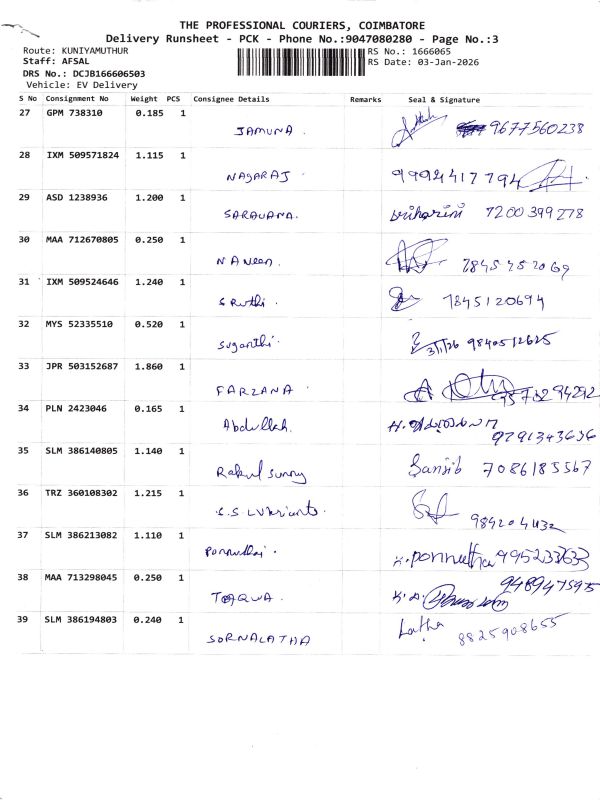 THE PROFESSIONAL COURIERS, COIMBATORE
Delivery Runsheet - PCK - Phone No.:9047080280 - Page No.:3
Route: KUNIYAMUTHUR RS No.: 1666065
Staff: AFSAL RS Date: 03-Jan-2026
DRS No.: DCJB166606503
Vehicle: EV Delivery
S No Consignment No Weight PCS Consignee Details Remarks Seal & Signature
27 GPM 738310 0.185 1
JAMUNA. 9677560238
28 IXM 509571824 1.115 1
NAGARAJ. 9994417794
29 ASD 1238936 1.200 1
SARAVANA. 7200399278
30 MAA 712670805 0.250 1
NAVeen. 7845752069
31 IXM 509524646 1.240 1
SRuthi. 7845120694
32 MYS 52335510 0.520 1
Suganthi. 3/1/26 9840512625
33 JPR 503152687 1.860 1
FARZANA.
34 PLN 2423046 0.165 1
Abdullah. 9791343636
35 SLM 386140805 1.140 1
Rahul sunny Sanjib 7086185567
36 TRZ 360108302 1.215 1
S.S
37 SLM 386213082 1.110 1
Ponnuthai. K.ponnutha 995233633
38 MAA 713298045 0.250 1
TAQWA. K.A. 948947595
39 SLM 386194803 0.240 1
SORNALATHA Latha 8825908655